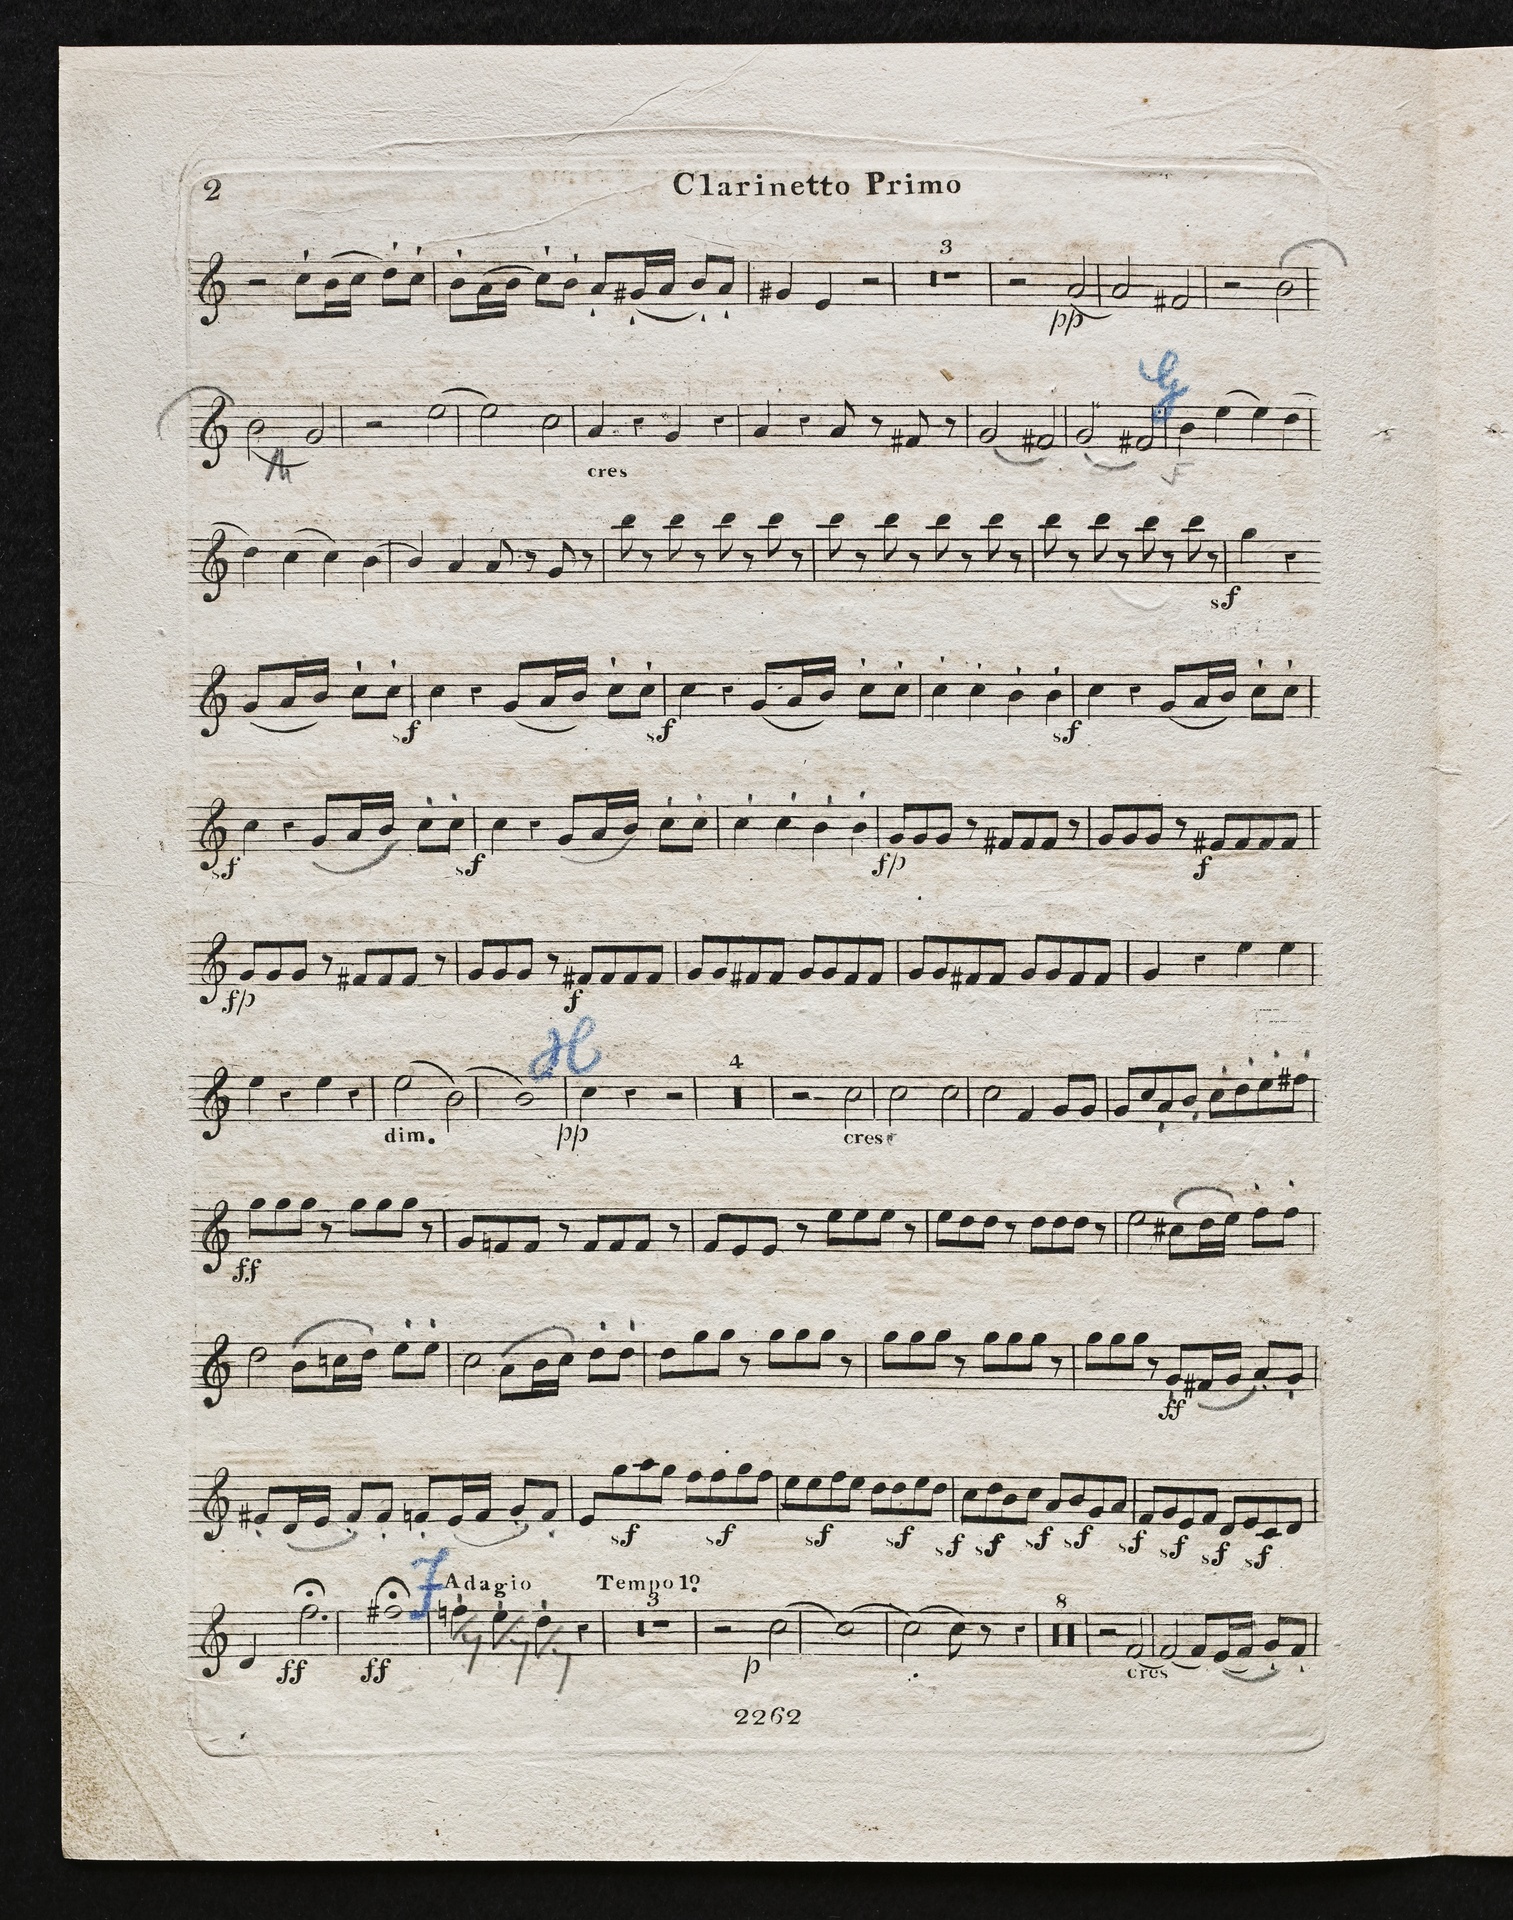 2
Clarinetto Primo
3
pp
G
cres
sf
sf sf sf
sf sf fp f
fp f
H
4
dim. pp cres
ff
ff
sf sf sf sf sf sf sf sf sf sf sf sf
J
Adagio Tempo 1º
3 8
ff ff p cres
2262